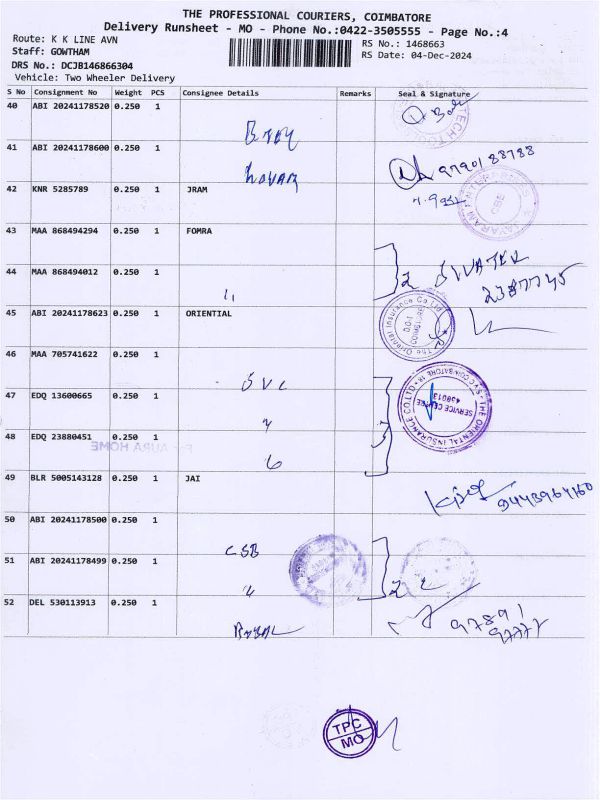 THE PROFESSIONAL COURIERS, COIMBATORE
Delivery Runsheet - MO - Phone No.:0422-3505555 - Page No.:4
Route: K K LINE AVN
RS No.: 1468663
Staff: GOWTHAM
RS Date: 04-Dec-2024
DRS No.: DCJB146866304
Vehicle: Two Wheeler Delivery
S No Consignment No Weight PCS Consignee Details Remarks Seal & Signature
40 ABI 20241178520 0.250 1
41 ABI 20241178600 0.250 1
9790188788
42 KNR 5285789 0.250 1 JRAM
43 MAA 868494294 0.250 1 FOMRA
44 MAA 868494012 0.250 1
2387745
45 ABI 20241178623 0.250 1 ORIENTIAL
The Oriental Insurance Co Ltd
46 MAA 705741622 0.250 1
SVC
THE ORIENTAL INSURANCE CO.LTD
SERVICE CENTRE
47 EDQ 13600665 0.250 1
48 EDQ 23880451 0.250 1
AURA HOME
49 BLR 5005143128 0.250 1 JAI
50 ABI 20241178500 0.250 1
CSB
51 ABI 20241178499 0.250 1
52 DEL 530113913 0.250 1
TPC
MO